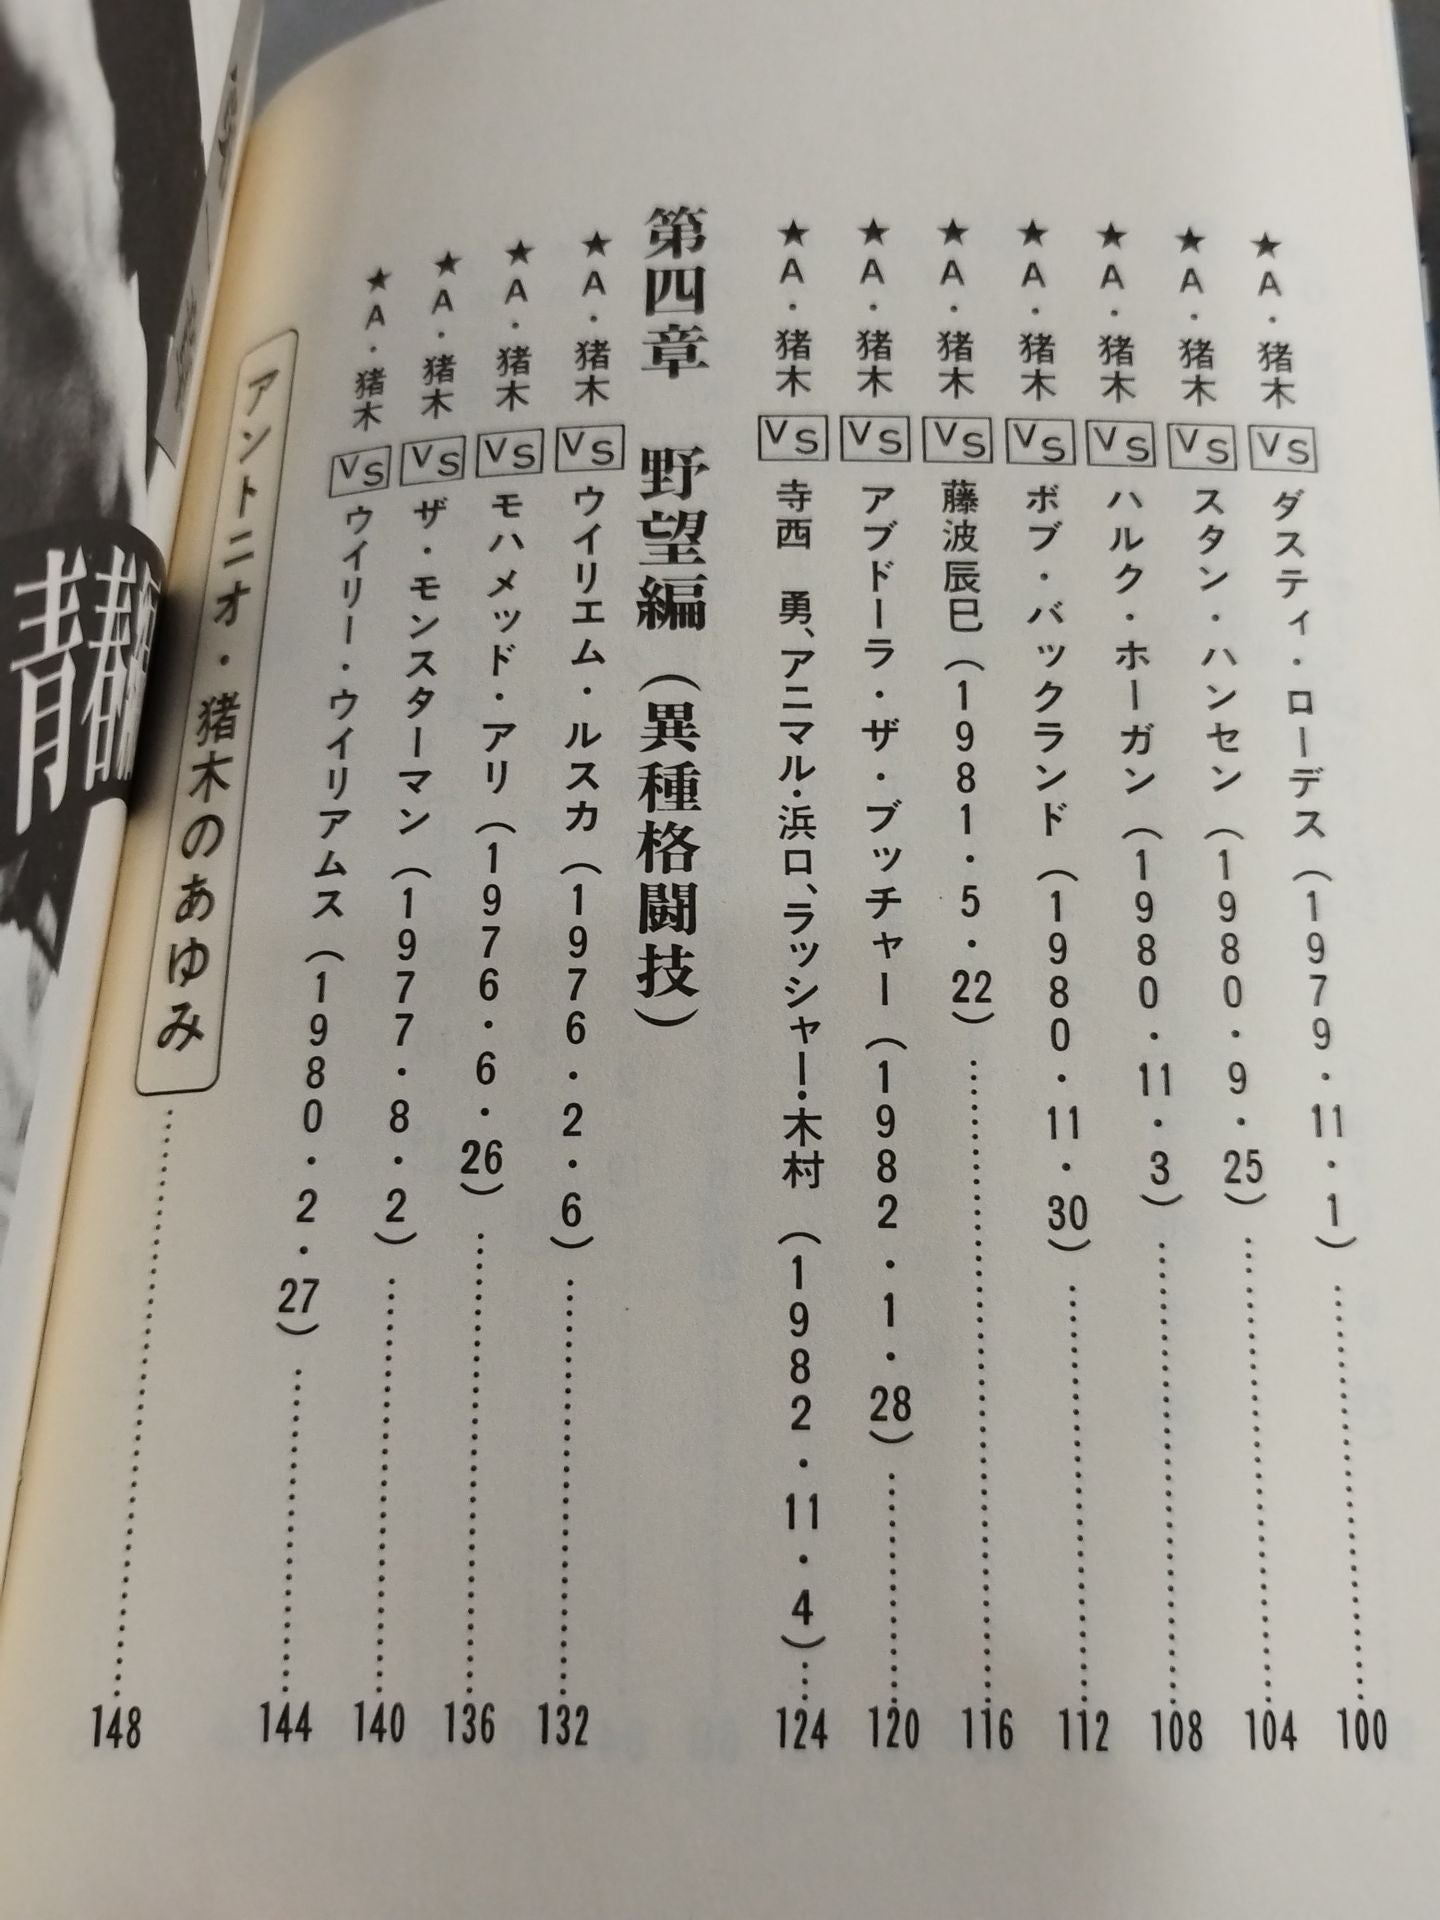 ★A・猪木 VS ダスティ・ローデス（1979・11・1）……100
★A・猪木 VS スタン・ハンセン（1980・9・25）……104
★A・猪木 VS ハルク・ホーガン（1980・11・3）……108
★A・猪木 VS ボブ・バックランド（1980・11・30）……112
★A・猪木 VS 藤波辰巳（1981・5・22）……116
★A・猪木 VS アブドーラ・ザ・ブッチャー（1982・1・28）……120
★A・猪木 VS 寺西 勇、アニマル・浜口、ラッシャー・木村（1982・11・4）……124
第四章 野望編（異種格闘技）
★A・猪木 VS ウイリエム・ルスカ（1976・2・6）……132
★A・猪木 VS モハメッド・アリ（1976・6・26）……136
★A・猪木 VS ザ・モンスターマン（1977・8・2）……140
★A・猪木 VS ウイリー・ウイリアムス（1980・2・27）……144
アントニオ・猪木のあゆみ……148
青春